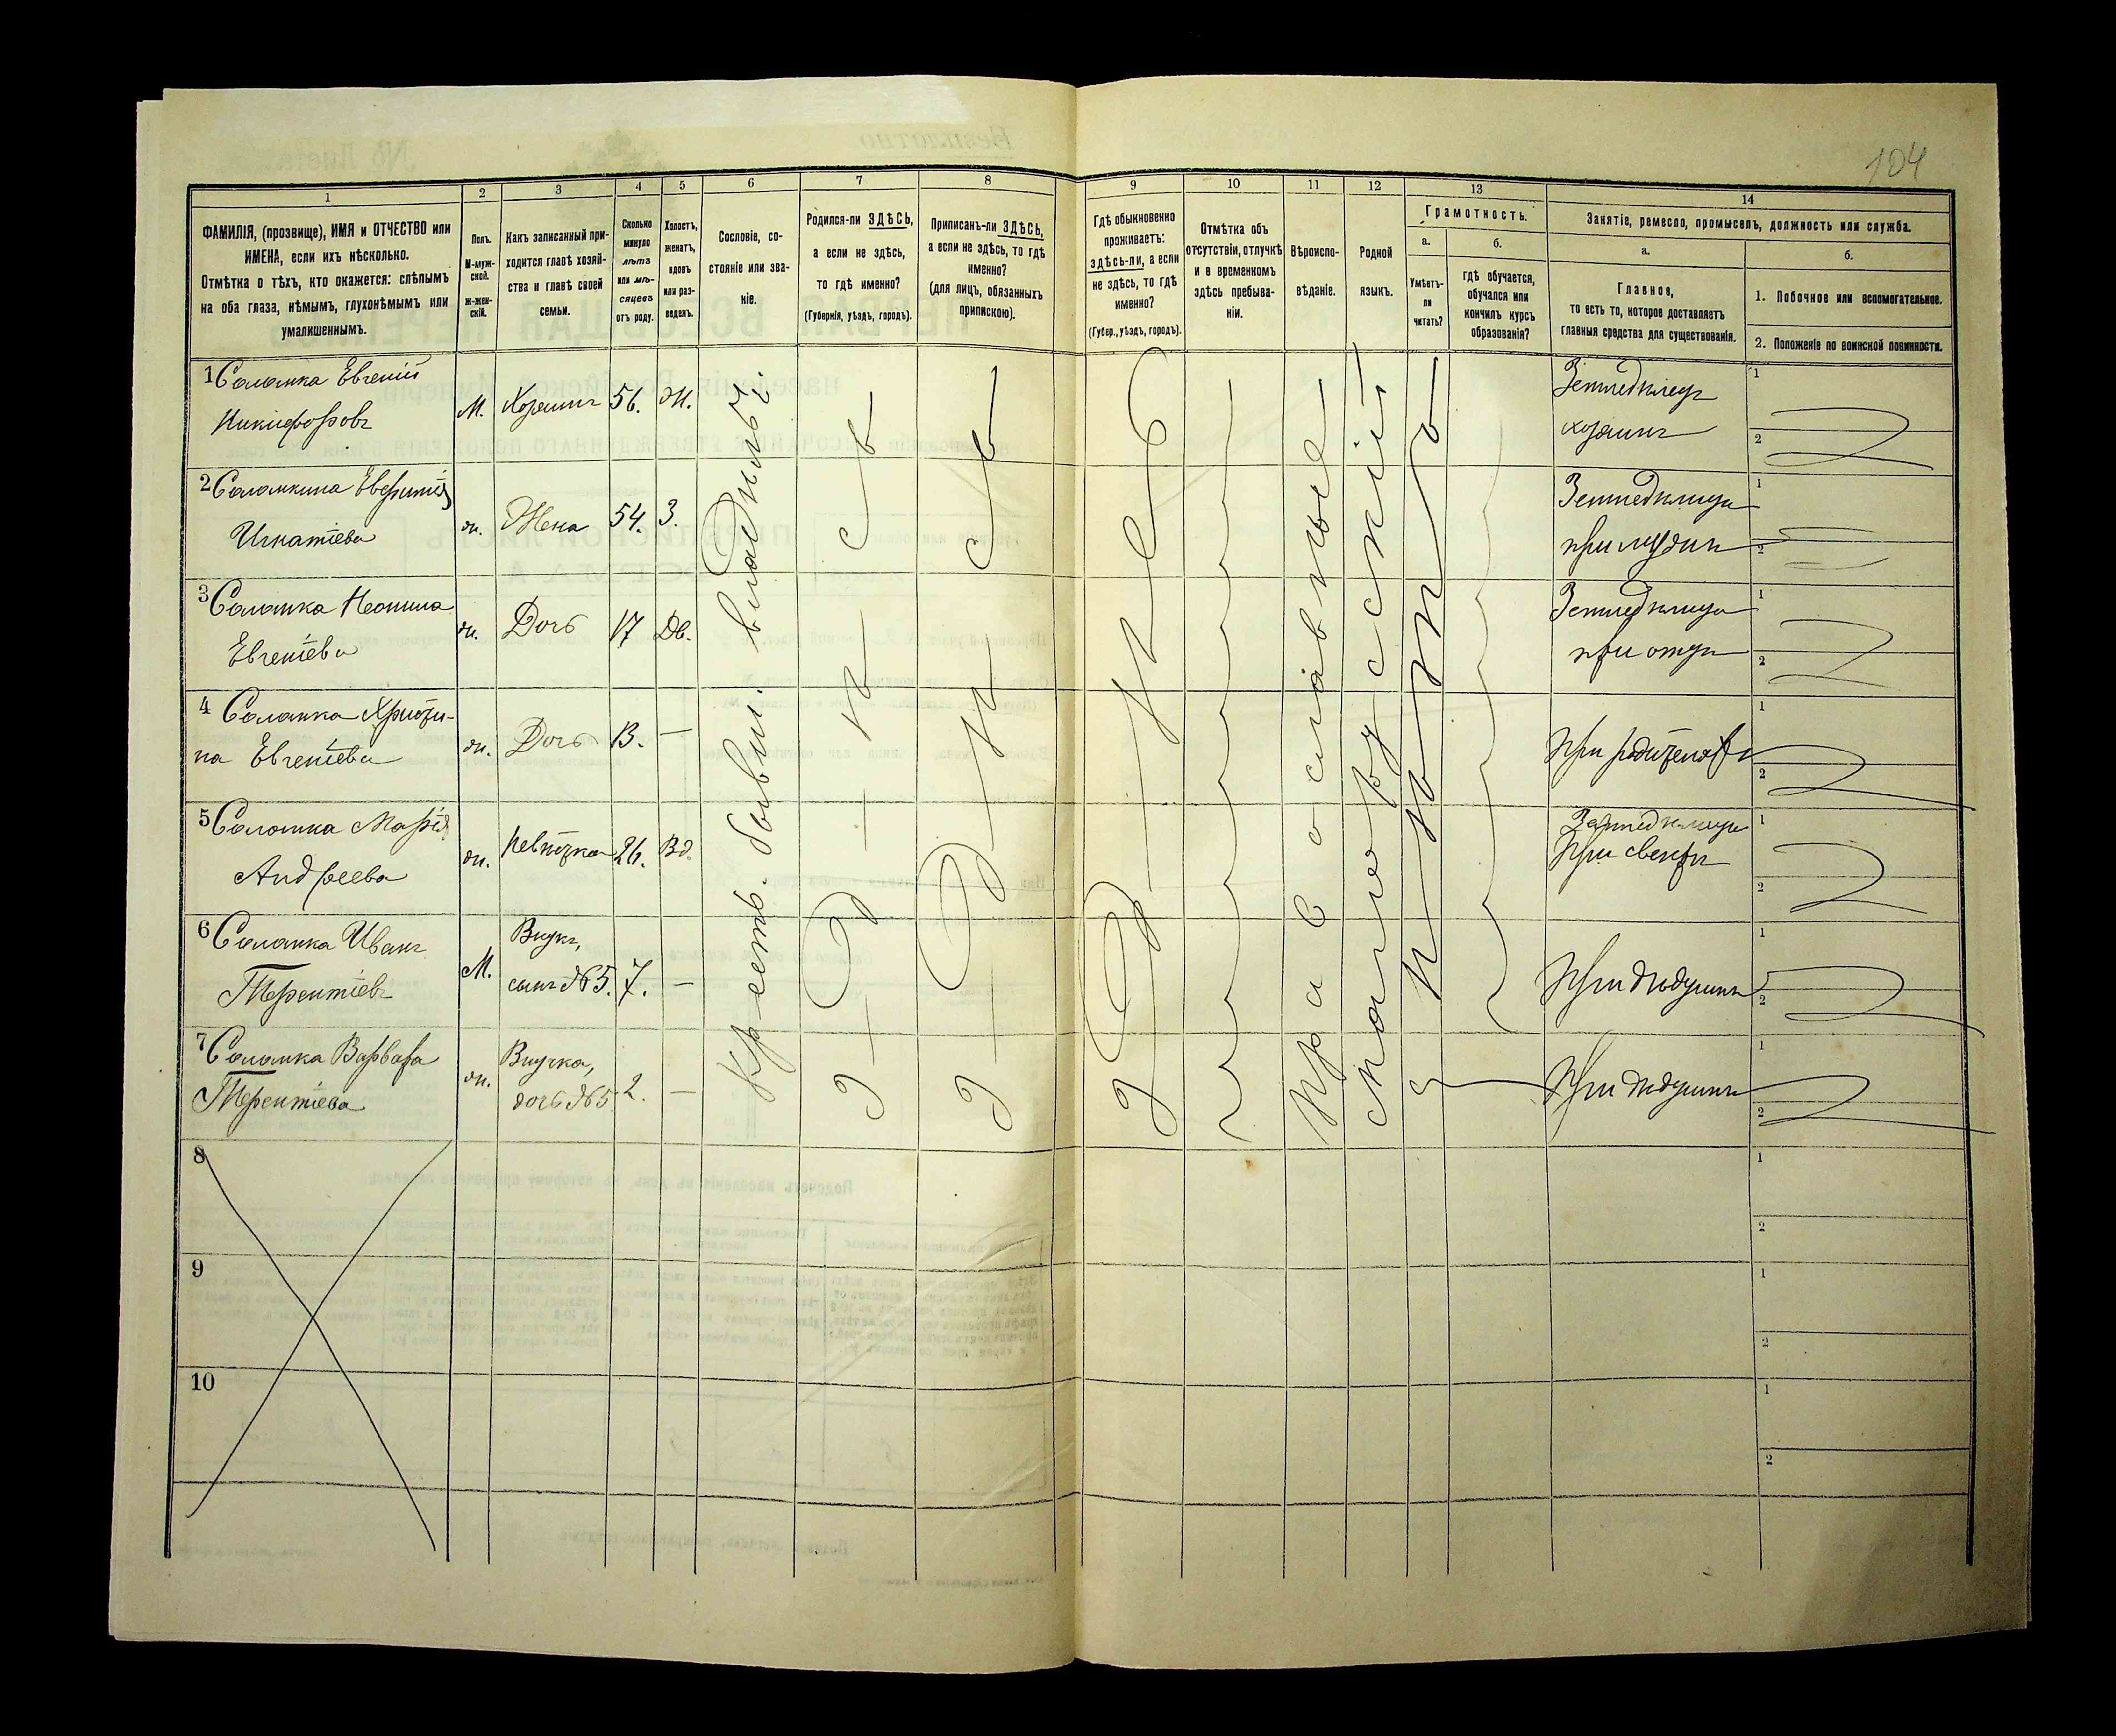 104
1
2
3
4
5
6
7
8
9
10
11
12
13
14
ФАМИЛІЯ, (прозвище), ИМЯ и ОТЧЕСТВО или
ИМЕНА, если ихъ нѣсколько.
Отмѣтка о тѣхъ, кто окажется: слѣпымъ
на оба глаза, нѣмымъ, глухонѣмымъ или
умалишеннымъ.
Полъ.
М-муж-
ской.
Ж-жен-
скій.
Какъ записанный при-
ходится главѣ хозяй-
ства и главѣ своей
семьи.
Сколько
минуло
лѣтъ
или мѣ-
сяцевъ
отъ роду.
Холостъ,
женатъ,
вдовъ
или раз-
веденъ.
Сословіе, со-
стояніе или зва-
ніе.
Родился-ли ЗДѢСЬ,
а если не здѣсь,
то гдѣ именно?
(Губернія, уѣздъ, городъ).
Приписанъ-ли ЗДѢСЬ,
а если не здѣсь, то гдѣ
именно?
(для лицъ, обязанныхъ
припискою).
Гдѣ обыкновенно
проживаетъ:
здѣсь-ли, а если
не здѣсь, то гдѣ
именно?
(Губер., уѣздъ, городъ).
Отмѣтка объ
отсутствіи, отлучкѣ
и о временномъ
здѣсь пребыва-
ніи.
Вѣроиспо-
вѣданіе.
Родной
языкъ.
Грамотность.
а.
Умѣетъ-
ли
читать?
б.
гдѣ обучается,
обучался или
кончилъ курсъ
образованія?
Занятіе, ремесло, промыселъ, должность или служба.
а.
Главное,
то есть то, которое доставляетъ
главныя средства для существованія.
б.
1. Побочное или вспомогательное.
2. Положеніе по воинской повинности.
1 Саломка Евгеній
Никифоровъ
М. Хозяинъ 56. Ж.
Земледѣлецъ
хозяинъ
2 Саломкина
Игнатіева
ж. Жена 54. З.
Земледѣлица
при мужѣ
3 Саломка Неонила
Евгеніева
ж. Дочь 17 Дѣ.
Земледѣлица
при отцѣ
4 Саломка Христи-
на Евгеніева
ж. Дочь 13. —
При родителяхъ
5 Саломка Марія
Андреева
ж. Невѣстка 26. Вд.
Земледѣлица
При свекрѣ
6 Саломка Иванъ
Терентіевъ
М. Внукъ,
сынъ №5. 7. —
При дѣдушкѣ
7 Саломка Варвара
Терентіева
ж. Внучка,
дочь №5 2. —
При дѣдушкѣ
Крест. бывш. владѣльч.
Здѣсь
Здѣсь
Здѣсь
Православные
Малорусскій
8
9
10